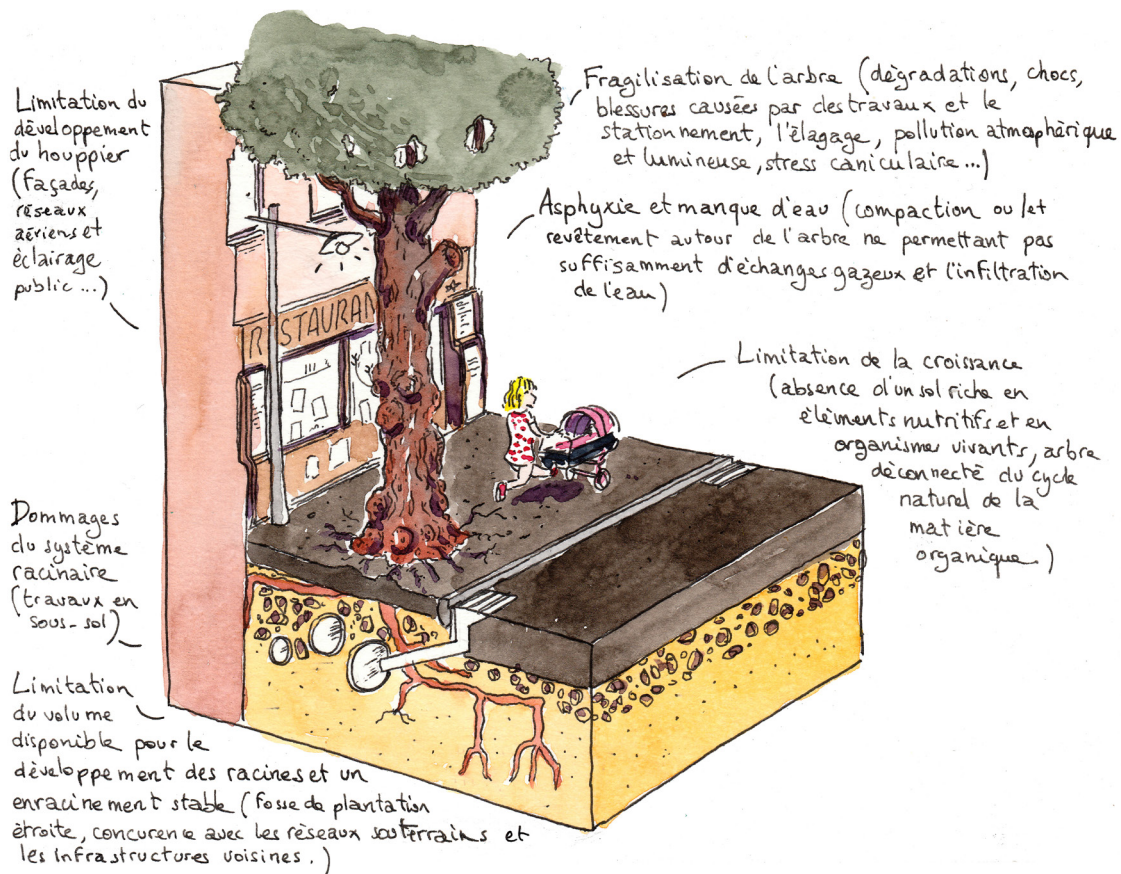 Limitation du
développement
du houppier
(façades,
réseaux
aériens et
éclairage
public ...)
Fragilisation de l'arbre (dégradations, chocs,
blessures causées par des travaux et le
stationnement, l'élagage, pollution atmosphérique
et lumineuse, stress caniculaire ...)
Asphyxie et manque d'eau (compaction ou/et
revêtement autour de l'arbre ne permettant pas
suffisamment d'échanges gazeux et l'infiltration
de l'eau)
RESTAURAN
Limitation de la croissance
(absence d'un sol riche en
éléments nutritifs et en
organismes vivants, arbre
déconnecté du cycle
naturel de la
matière
organique.)
Dommages
du système
racinaire
(travaux en
sous-sol)
Limitation
du volume
disponible pour le
développement des racines et un
enracinement stable (fosse de plantation
étroite, concurence avec les réseaux souterrains et
les infrastructures voisines.)